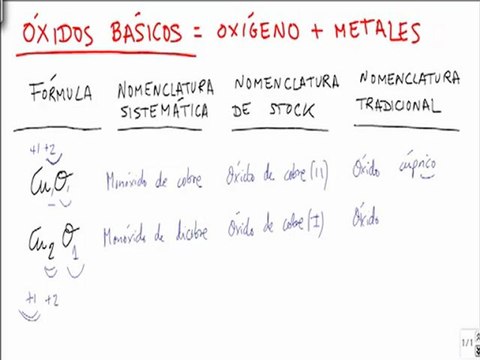 ÓXIDOS BÁSICOS = OXÍGENO + METALES
FÓRMULA NOMENCLATURA SISTEMÁTICA NOMENCLATURA DE STOCK NOMENCLATURA TRADICIONAL
+1 +2
Cu₁O₁ Monóxido de cobre Óxido de cobre (II) Óxido cúprico
Cu₂O₁ Monóxido de dicobre Óxido de cobre (I) Óxido
+1 +2
1/1